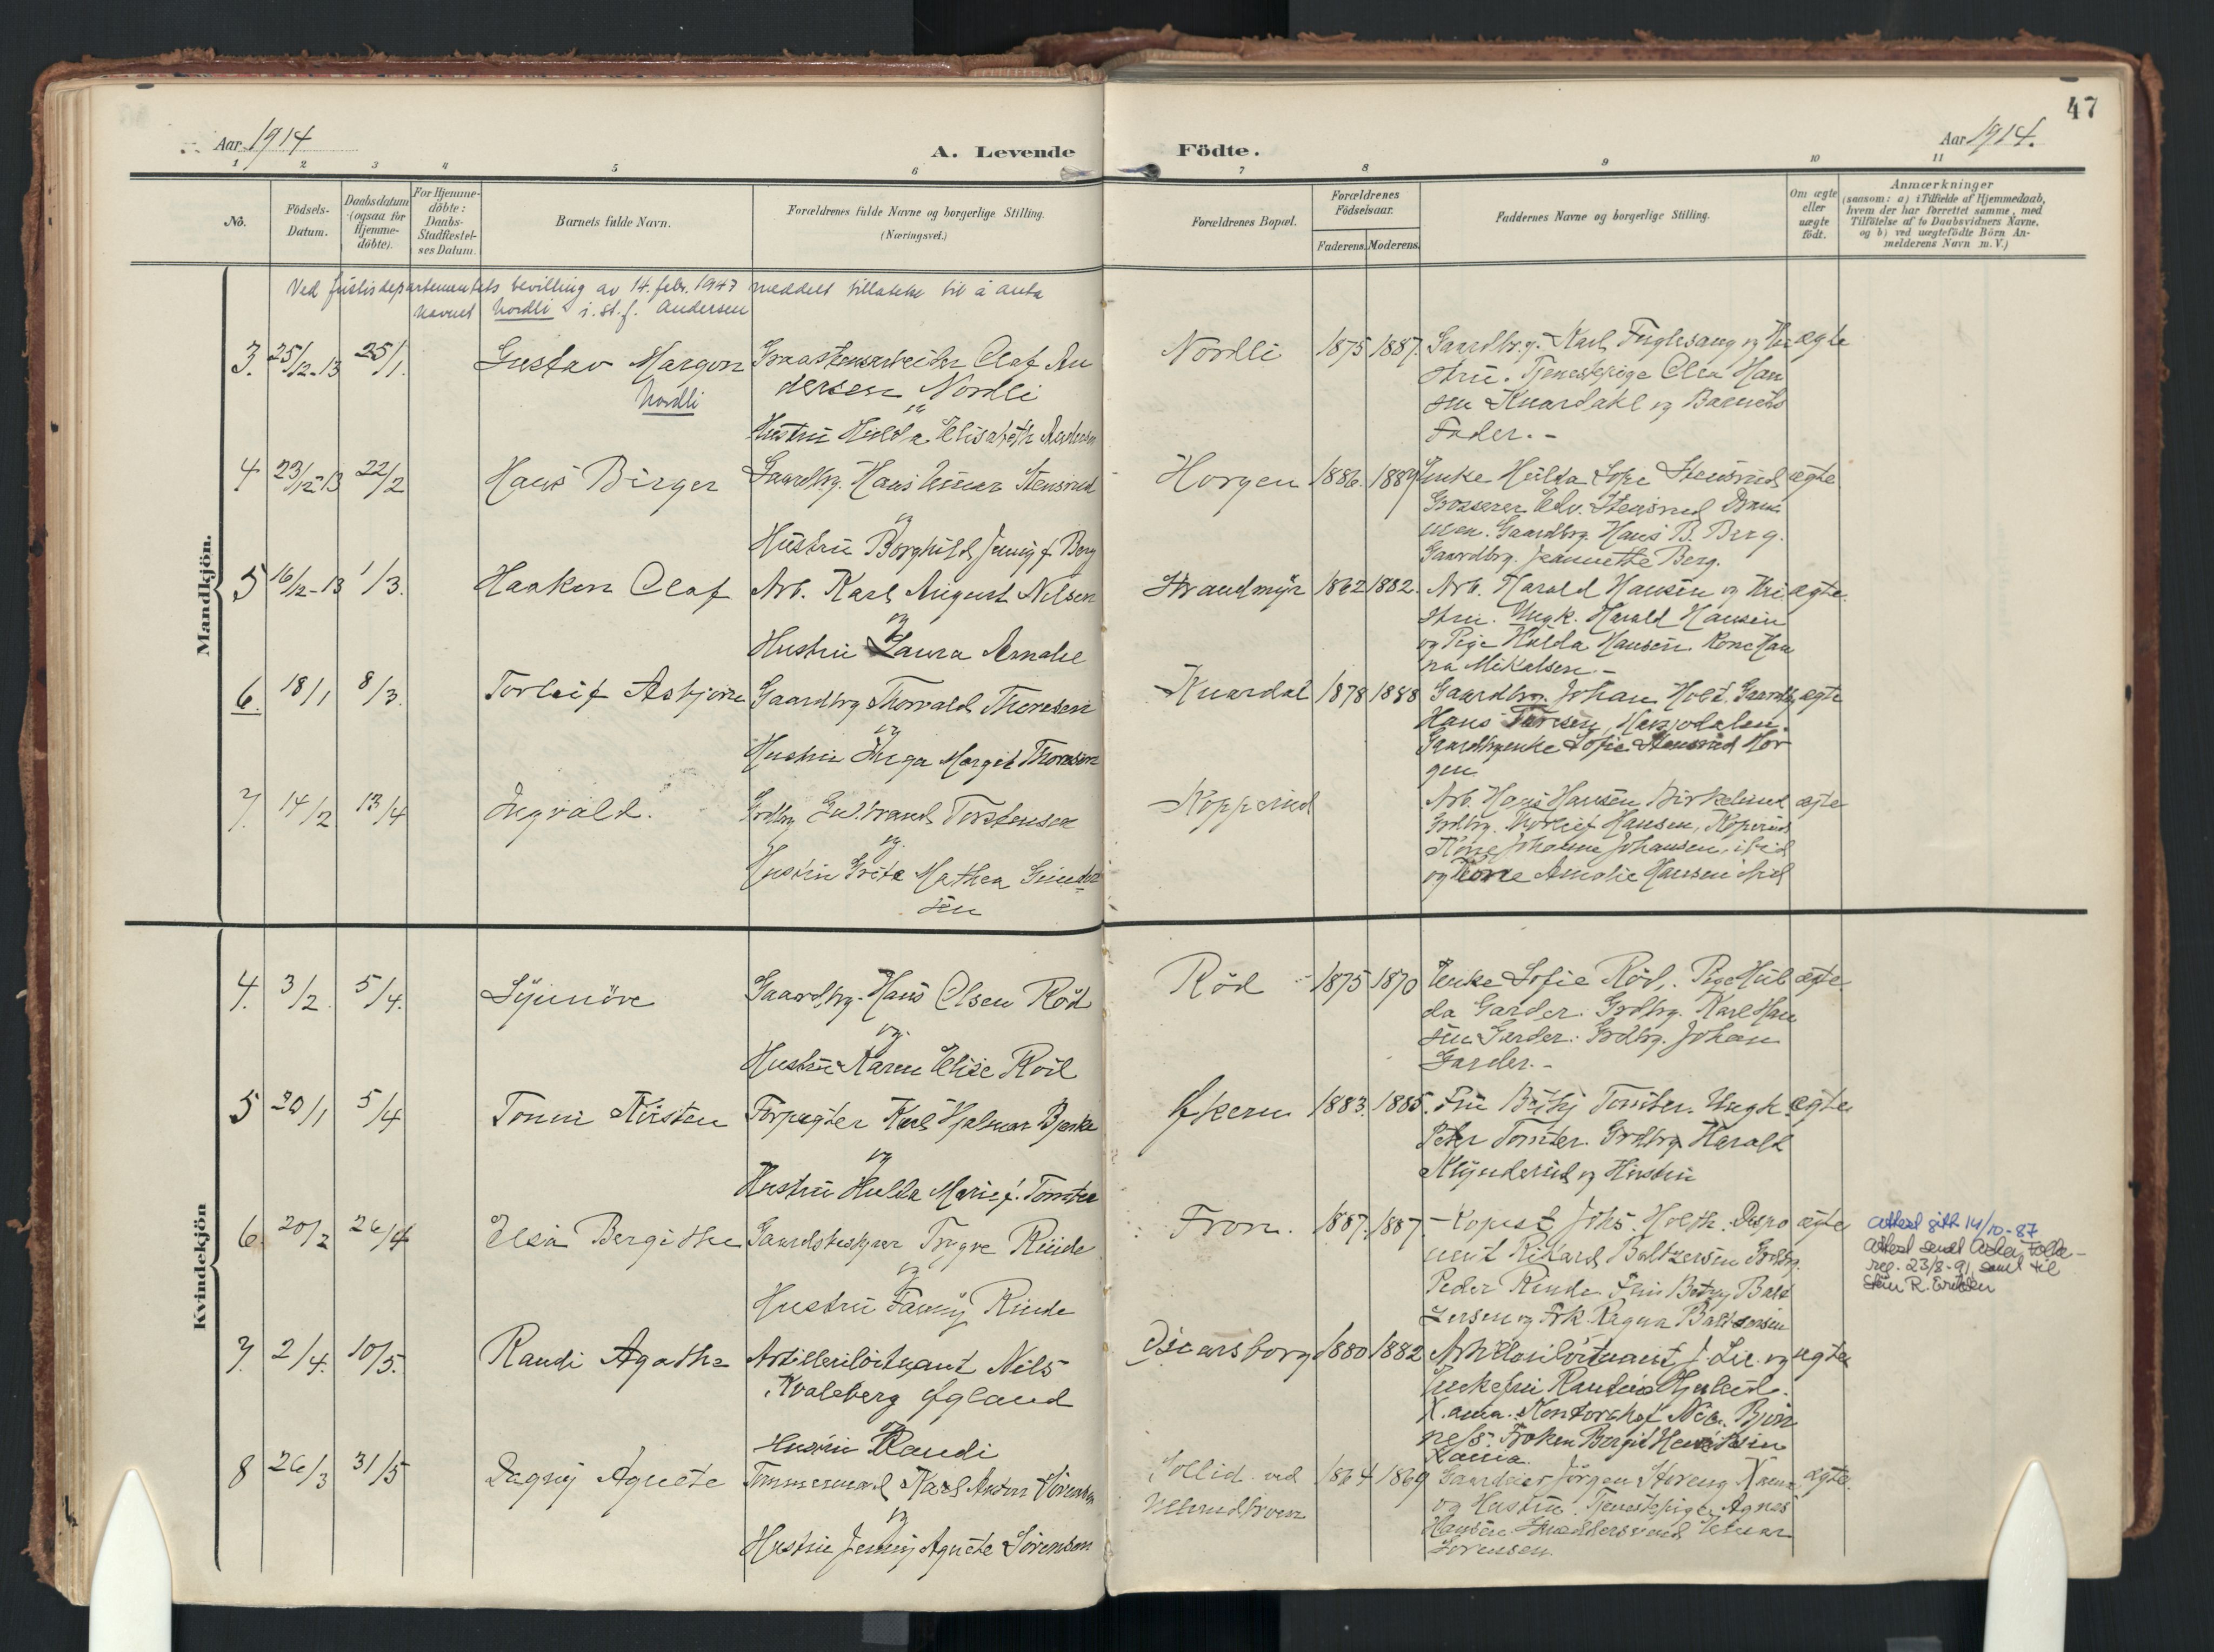 47
Aar 1914
A. Levende
Födte.
Aar 1914.
1 2 3 4 5 6 7 8 9 10 11
No.
Födsels-Datum.
Daabsdatum (ogsaa for Hjemme-döbte).
For Hjemme-döbte: Daabs-Stadfæstel-ses Datum.
Barnets fulde Navn.
Forældrenes fulde Navne og borgerlige Stilling.
(Næringsvei.)
Forældrenes Bopæl.
Forældrenes Födselsaar.
Faderens. Moderens.
Faddernes Navne og borgerlige Stilling.
Om ægte eller uægte födt.
Anmærkninger
(saasom: a) i Tilfælde af Hjemmedaab,
hvem der har forrettet samme, med
Tilföielse af to Daabsvidners Navne,
og b) ved uægtefödte Börn An-
melderens Navn m. V.)
Ved justisdepartementets bevilling av 14. febr. 1947 meddelt tillatelse til å anta
navnet Nordli i. st. f. Andersen
Mandkjön.
3. 25/12-13 25/1. Gustav Margon
Nordli
Graastensarbeider Olaf An
dersen Nordli
og
Hustru Hulda Elisabeth Andersen
Nordli 1875 1887. Gaardbrg. Karl Fuglesang og Hu ægte
stru. Tjenestepige Olea Han
sen Knardahl og Barnets
Fader.-
4 23/12-13 22/2 Hans Birger
Gaardbrg. Hans Einar Stensrud
og
Hustru Borghild Jenny f. Berg
Horgen 1886. 1889 Enke Hulda Sofie Stensrud ægte
Grosserer Edv. Stensrud Dram
men. Gaardbrg. Hans B. Berg.
Gaardbrg. Jeannette Berg.
5 16/12-13 1/3. Haakon Olaf
Arb. Karl August Nilsen
og
Hustru Laura Amalie
Strandmyr 1862 1882. Arb. Harald Hansen og Hu ægte.
stru. Ungk. Harald Hansen
og Pige Hulda Hansen. Kone Han
na Mikalsen.-
6. 18/1 8/3. Torleif Asbjørn
Gaardbrg Thorvald Thoresen
og
Hustru Inga Margit Thoresen
Knardal 1878 1888 Gaardbrg. Johan Holt. Gaardb. ægte
Hans Toresen,
Gaardbrgenke Sofie Stensrud Hor
gen
7. 14/2 13/4 Ingvald.
Grdbrg Gulbrand Torstensen
og
Hustru Grete Mathea Gunder
sen
Kopperud
Arb. Hans Hansen Birkelund ægte
Grdbrg. Hansen, Koperud
Kone Johanne Johansen, ibid
og Kone Amalie Hansen ibid
Kvindekjön
4. 3/2. 5/4. Synnöve
Gaardbrg. Hans Olsen Röd
og.
Hustru Karen Elise Röd
Röd 1875 1870 Enke Sofie Röd. Pige Hul ægte.
da Garder. Grdbrg. Karl Han
sen Garder. Grdbrg. Johan
Garder.-
5 20/1 5/4 Tonni Kirsten
Forpagter Karl Hjalmar Bjerke
og
Hustru Hulda Marie f. Tomter
Økern 1883. 1885. Fru Tomter. Ungk. ægte
Peter Tomter. Grdbrg. Harald
Klynderud og Hustru
6. 20/2 26/4 Elsa Bergithe
Gaardbestyrer Trygve Rinde
og
Hustru Fanny Rinde
Fron. 1887. 1887 Kopist Johs. Holth. Dispo ægte
nent Rikard Baltzersen Grdbrg.
Peder Rinde Fru Betzy Balt
zersen og Frk. Ragna Baltzersen
Attest gitt 14/10-87
Attest sendt Asker Folke-
reg. 23/8-91, samt til
R. Eriksen
7. 2/4. 10/5. Randi Agathe
Artilleriløitnant Nils
Kvaleberg Øgland
og
Hustru Randi
Oscarsborg 1880 1882 Artilleriløitnant J. Lie. og ægte
Enkefru
X.ania. Kontorchef Nic. Bjön
ness. Frøken Bergit Henriksen
Xania.
8 26/3 31/5 Dagny Agnete
Tømmermand Karl Anton Sörensen
og
Hustru Jenny Agnete Sörensen
Sollid. ved 1864 1869 Gaardeier Jörgen Xania ægte.
og Hustru. Tjenestepige Agnes
Hansen Einar
Sorensen.